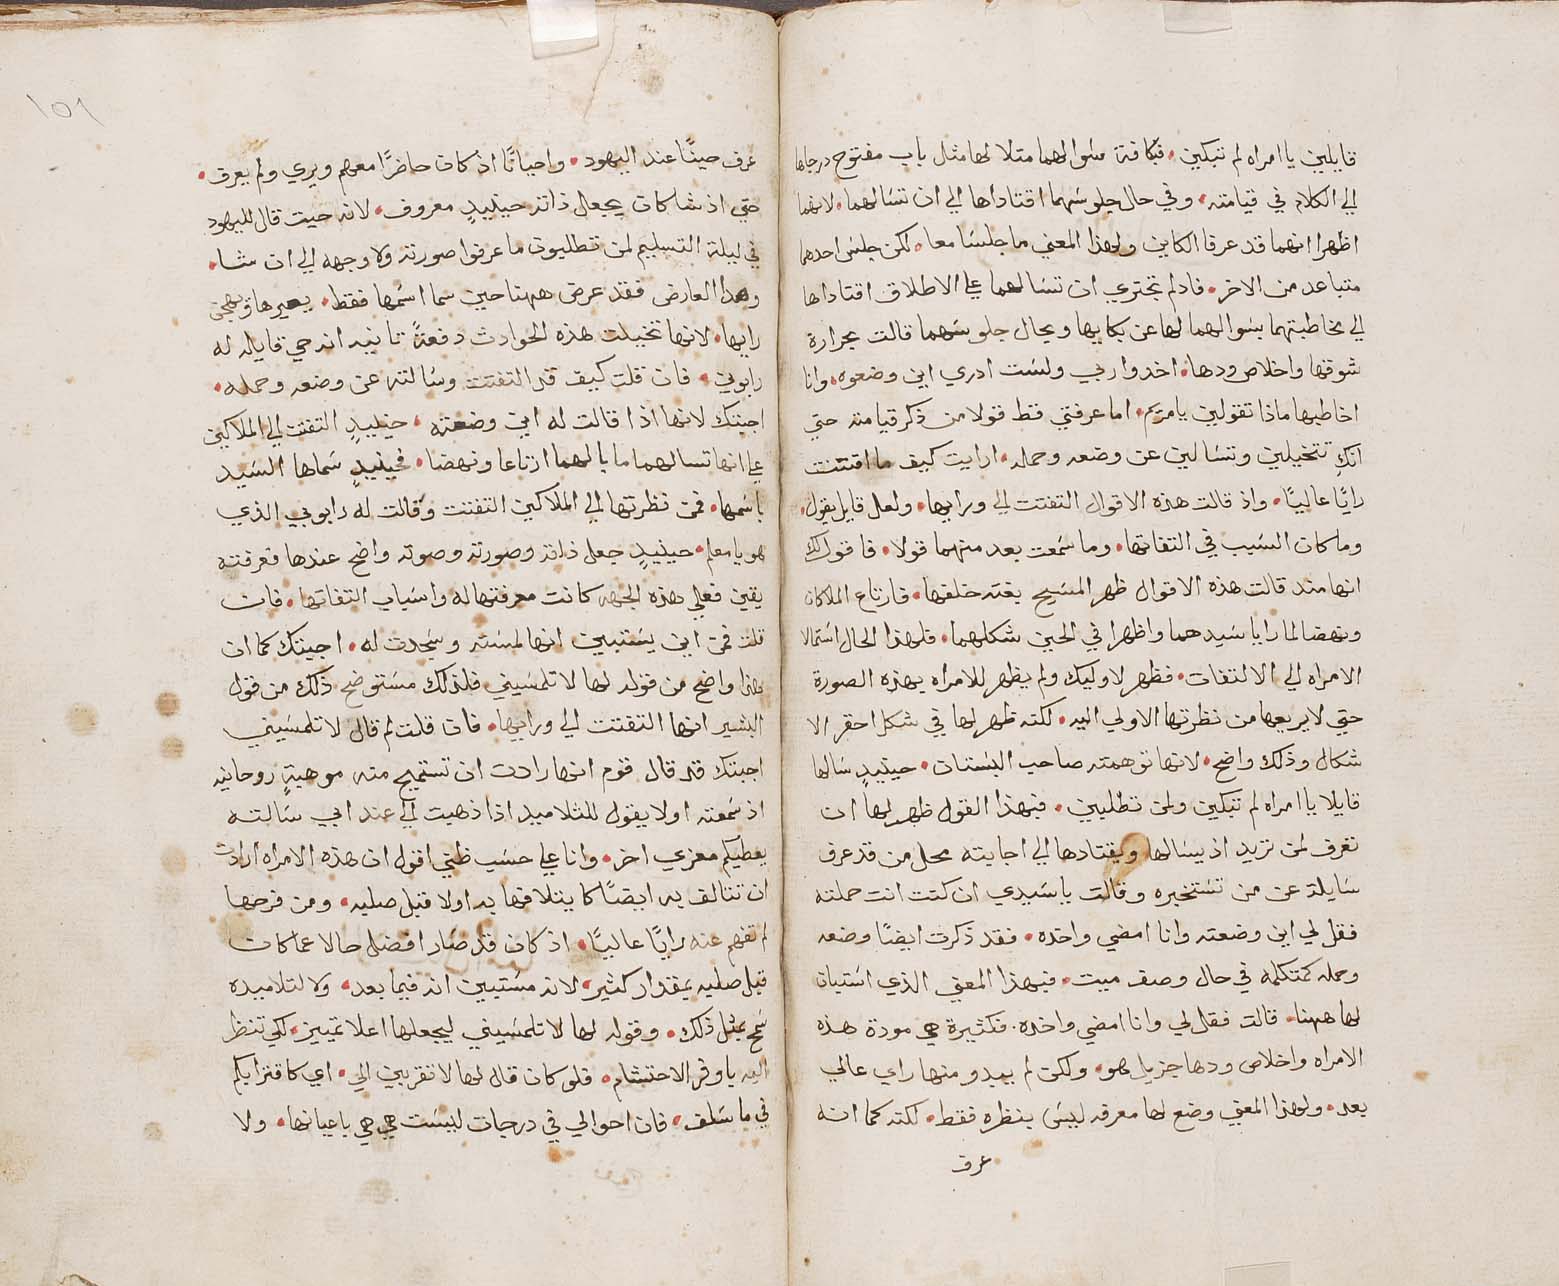 قايلين يا امراه لم تبكين. فكافة سوالهما مثلا لها مثل باب مفتوح درجاها
الي الكلام في قيامته. وفي حال جلوسهما اقتاداها الي ان تسالهما. لانهما
اظهرا انهما قد عرفا الكاين ولهذا المعني ما جلسا معا. لكن جلس احدهما
متباعد من الاخر. فاذ لم تجتري ان تسالهما علي الاطلاق اقتاداها
الي مخاطبتهما بسوالهما لها عن بكايها وبحال جلوسهما قالت بحرارة
شوقها واخلاص ودها. اخدوا ربي ولست ادري اين وضعوه. وانا
اخاطبها ماذا تقولين يا مريم. اما عرفتي قط قولا من ذكر قيامته حتي
انك تتخيلين وتسالين عن وضعه وحمله. ارايت كيف ما اقتنت
رايًا عاليًا. واذ قالت هذه الاقوال التفتت الي ورايها. ولعل قايل يقول.
وما كان السبب في التفاتها. وما سمعت بعد منهما قولا. فاقول لك
انها مند قالت هذه الاقوال ظهر المسيح بغته خلفها. فارتاع الملاكان
ونهضا لما رايا سيدهما واظهرا في الحين شكلهما. فلهذا الحال استمالا
الامراه الي الالتفات. فظهر لاوليك ولم يظهر للامراه بهذه الصورة
حتي لا يريعها من نظرتها الاولي اليه. لكنه ظهر لها في شكل احقر الا
شكال وذلك واضح. لانها توهمته صاحب البستان. حينيدٍ سالها
قايلا يا امراه لم تبكين ولمن تطلبين. فبهذا القول ظهر لها ان
تعرف لمن تريد اذ يسالها ويقتادها الي اجابته محل من قد عرف
سايلة عن من تستخبره وقالت يا سيدي ان كنت انت حملته
فقل لي اين وضعته وانا امضي واخده. فقد ذكرت ايضًا وضعه
وحمله كمتكلمه في حال وصف ميت. فبهذا المعني الذي استبان
لها ههنا. قالت فقل لي وانا امضي واخده. فكثيرة هي مودة هذه
الامراه واخلاص ودها جزيل هو. ولكن لم يبدو منها راي عالي
بعد. ولهذا المعني وضع لها معرفه ليس بنظره فقط. لكنه كما انه
عرف
١٥٦
عرف حينًا عند اليهود. واحيانًا اذ كان حاضرًا معهم ويري ولم يعرف.
حتي اذ شا كان يجعل ذاته حينيدٍ معروف. لانه حيت قال لليهود
في ليلة التسليم لمن تطلبون ما عرفوا صورته ولا وجهه الي ان شا.
وهذا العارض فقد عرض ههنا حين سما اسمها فقط.
رايها. لانها تخيلت هذه الحوادث دفعةً تانيه انه حي قايله له
رابوني. فان قلت كيف قد التفتت وسالته عن وضعه وحمله.
اجبتك لانها اذا قالت له اين وضعته. حينيدٍ التفتت الي الملاكين
علي انها تسالهما ما بالهما ارتاعا ونهضا. فحينيدٍ سماها السيد
باسمها. فمن نظرتها الي الملاكين التفتت وقالت له رابوني الذي
هو يا معلم. حينيدٍ جعل ذاته وصورته وصوته واضح عندها فعرفته
يقين فعلي هذه الجهه كانت معرفتها له واسباب التفاتها. فان
قلت فمن اين يستبين انها لمسته وسجدت له. اجبتك كما ان
هذا واضح من قوله لها لا تلمسيني فلذلك مستوضح ذلك من قول
البشير انها التفتت الي ورايها. فان قلت لم قال لا تلمسيني
اجبتك قد قال قوم انها رادت ان تستميح منه موهبةٍ روحانيه
اذ سمعته اولا يقول للتلاميد اذا ذهبت الي عند ابي سالته
يعطيكم معزي اخر. وانا علي حسب ظني اقول ان هذه الامراه ارادت
ان تتالف به ايضًا كما يتلاقها به اولا قبل صلبه. ومن فرحها
لم تفهم عنه رايًا عاليًا. اذ كان قد صار افضل حالا عما كان
قبل صلبه بمقدار كثير. لانه مستبين انه فيما بعد. ولا لتلاميده
سمح بمثل ذلك. وقوله لها لا تلمسيني ليجعلها اعلا تمييز. لكي تنظر
اليه باوفر الاحتشام. فلو كان قال لها لا تقربين الي. اي كاقترابكم
في ما سلف. فان احوالي في درجات ليست هي هي باعيانها. ولا